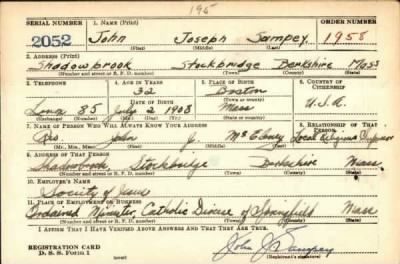 195
SERIAL NUMBER 1. NAME (Print) ORDER NUMBER
2052 John Joseph Sampey 1958
(First) (Middle) (Last)
2. ADDRESS (Print)
Shadowbrook Stockbridge Berkshire Mass
(Number and street or R. F. D. number) (Town) (County) (State)
3. TELEPHONE 4. AGE IN YEARS 5. PLACE OF BIRTH 6. COUNTRY OF CITIZENSHIP
32 Boston
DATE OF BIRTH (Town or county)
Lenox 85 July 2 1908 Mass U.S.A.
(Exchange) (Number) (Mo.) (Day) (Yr.) (State or country)
7. NAME OF PERSON WHO WILL ALWAYS KNOW YOUR ADDRESS 8. RELATIONSHIP OF THAT PERSON
Rev. John J. Local Religious Superior
(Mr., Mrs., Miss) (First) (Middle) (Last)
9. ADDRESS OF THAT PERSON
Shadowbrook Stockbridge Berkshire Mass
(Number and street or R. F. D. number) (Town) (County) (State)
10. EMPLOYER'S NAME
Society of Jesus
11. PLACE OF EMPLOYMENT OR BUSINESS
Ordained Minister, Catholic Diocese of Springfield Mass
(Number and street or R. F. D. number) (Town) (County) (State)
I AFFIRM THAT I HAVE VERIFIED ABOVE ANSWERS AND THAT THEY ARE TRUE.
REGISTRATION CARD
D. S. S. Form 1
John J. Sampey
(Registrant's signature)